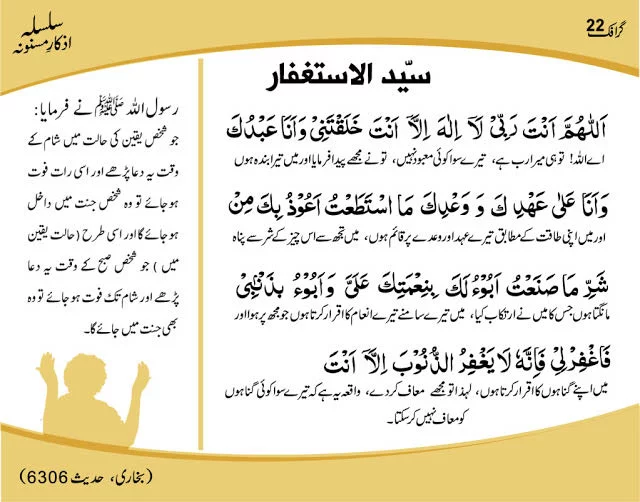 گرافک 22
سلسلہ
اذکارِ مسنونہ
سیّد الاستغفار
اَللّٰهُمَّ اَنْتَ رَبِّیْ لَاۤ اِلٰهَ اِلَّاۤ اَنْتَ خَلَقْتَنِیْ وَاَنَا عَبْدُكَ
اے اللہ! تو ہی میرا رب ہے، تیرے سوا کوئی معبود نہیں، تو نے مجھے پیدا فرمایا اور میں تیرا بندہ ہوں
وَاَنَا عَلٰی عَهْدِكَ وَ وَعْدِكَ مَا اسْتَطَعْتُ اَعُوْذُ بِكَ مِنْ
اور میں اپنی طاقت کے مطابق تیرے عہد اور وعدے پر قائم ہوں، میں تجھ سے اس چیز کے شر سے پناہ
شَرِّ مَا صَنَعْتُ اَبُوْءُ لَكَ بِنِعْمَتِكَ عَلَیَّ وَاَبُوْءُ بِذَنْۢبِیْ
مانگتا ہوں جس کا میں نے ارتکاب کیا، میں تیرے سامنے تیرے انعام کا اقرار کرتا ہوں جو مجھ پر ہوا اور
فَاغْفِرْلِیْ فَاِنَّهٗ لَا یَغْفِرُ الذُّنُوْبَ اِلَّاۤ اَنْتَ
میں اپنے گناہوں کا اقرار کرتا ہوں، لہٰذا تو مجھے معاف کر دے، واقعہ یہ ہے کہ تیرے سوا کوئی گناہوں
کو معاف نہیں کر سکتا۔
رسول اللہ ﷺ نے فرمایا:
جو شخص یقین کی حالت میں شام کے
وقت یہ دعا پڑھے اور اسی رات فوت
ہو جائے تو وہ شخص جنت میں داخل
ہو جائے گا اور اسی طرح (حالت یقین
میں) جو شخص صبح کے وقت یہ دعا
پڑھے اور شام تک فوت ہو جائے تو وہ
بھی جنت میں جائے گا۔
(بخاری، حدیث 6306)